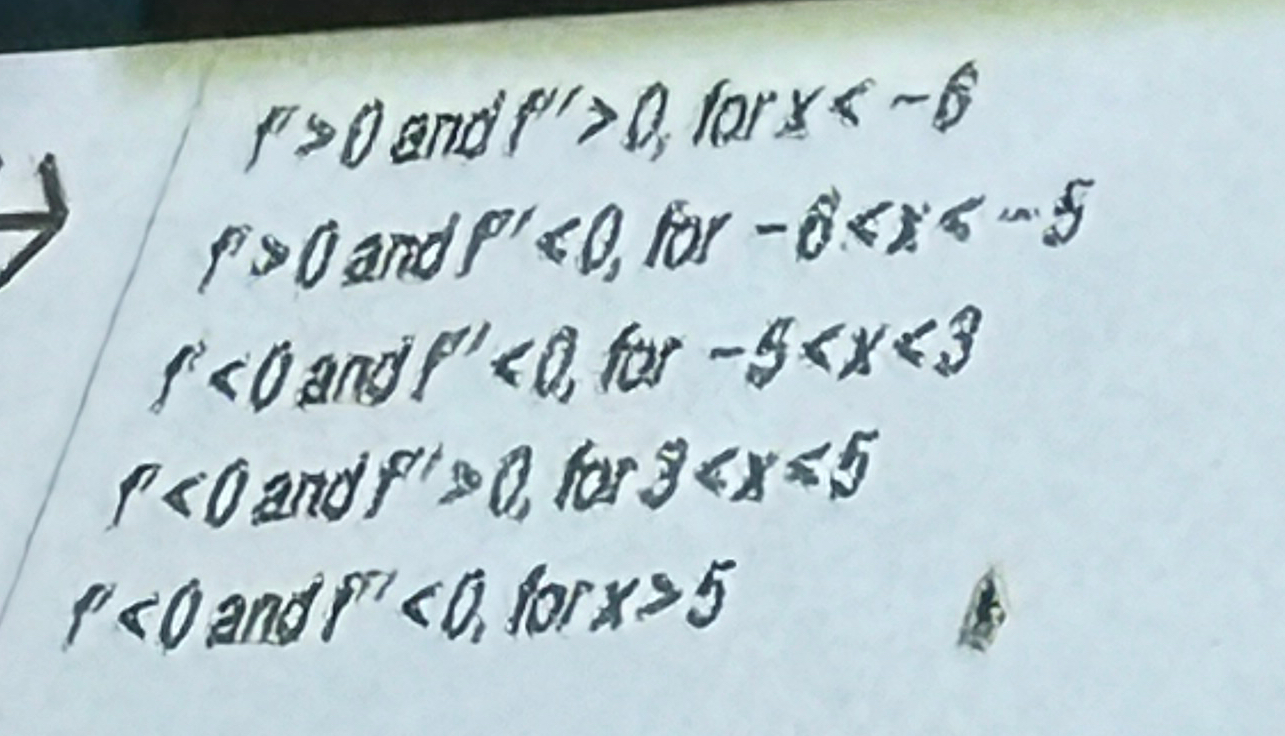 f' > 0 and f'' > 0, for x < -6
f' > 0 and f'' < 0, for -6 < x < -5
f' < 0 and f'' < 0, for -5 < x < 3
f' < 0 and f'' > 0, for 3 < x < 5
f' < 0 and f'' < 0, for x > 5